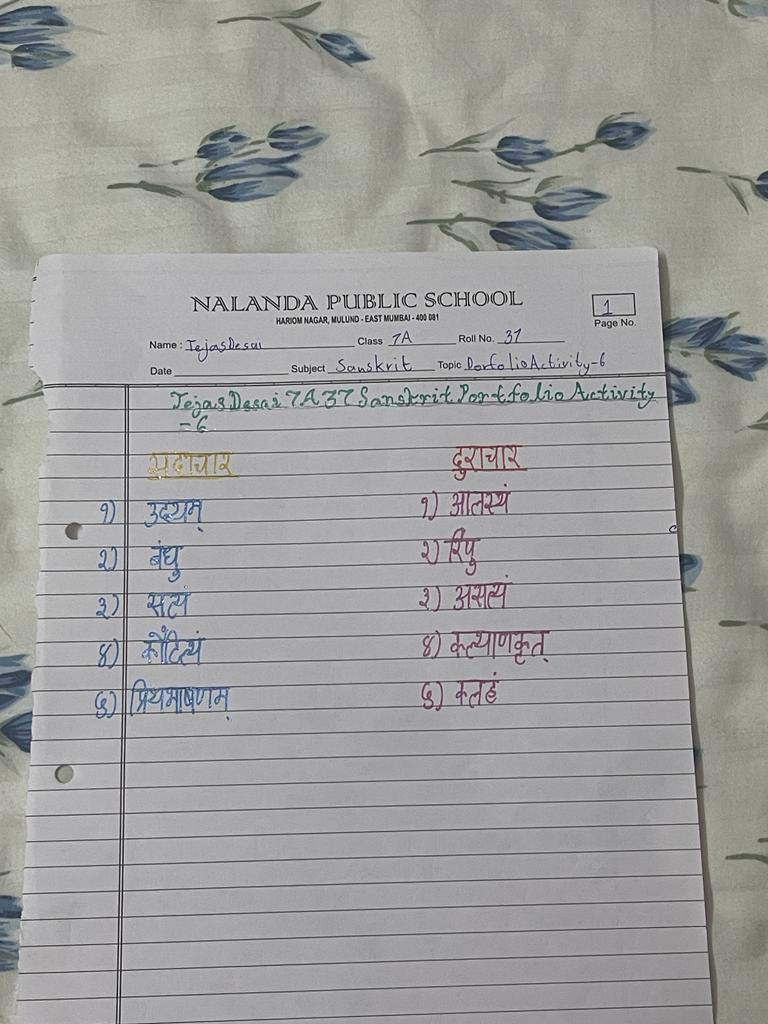 NALANDA PUBLIC SCHOOL
HARIOM NAGAR, MULUND - EAST MUMBAI - 400 081
1
Page No.
Name : Tejas Desai Class 7A Roll No. 37
Date Subject Sanskrit Topic Porfolio Activity-6
Tejas Desai 7A 37 Sanskrit Portfolio Activity
-6
सदाचार दुराचार
१) उद्यम् १) आलस्यं
२) बंधु २) रिपु
३) सत्यं ३) असत्यं
४) कौटिल्यं ४) कल्याणकृत्
५) प्रियभाषणम् ५) कलहं